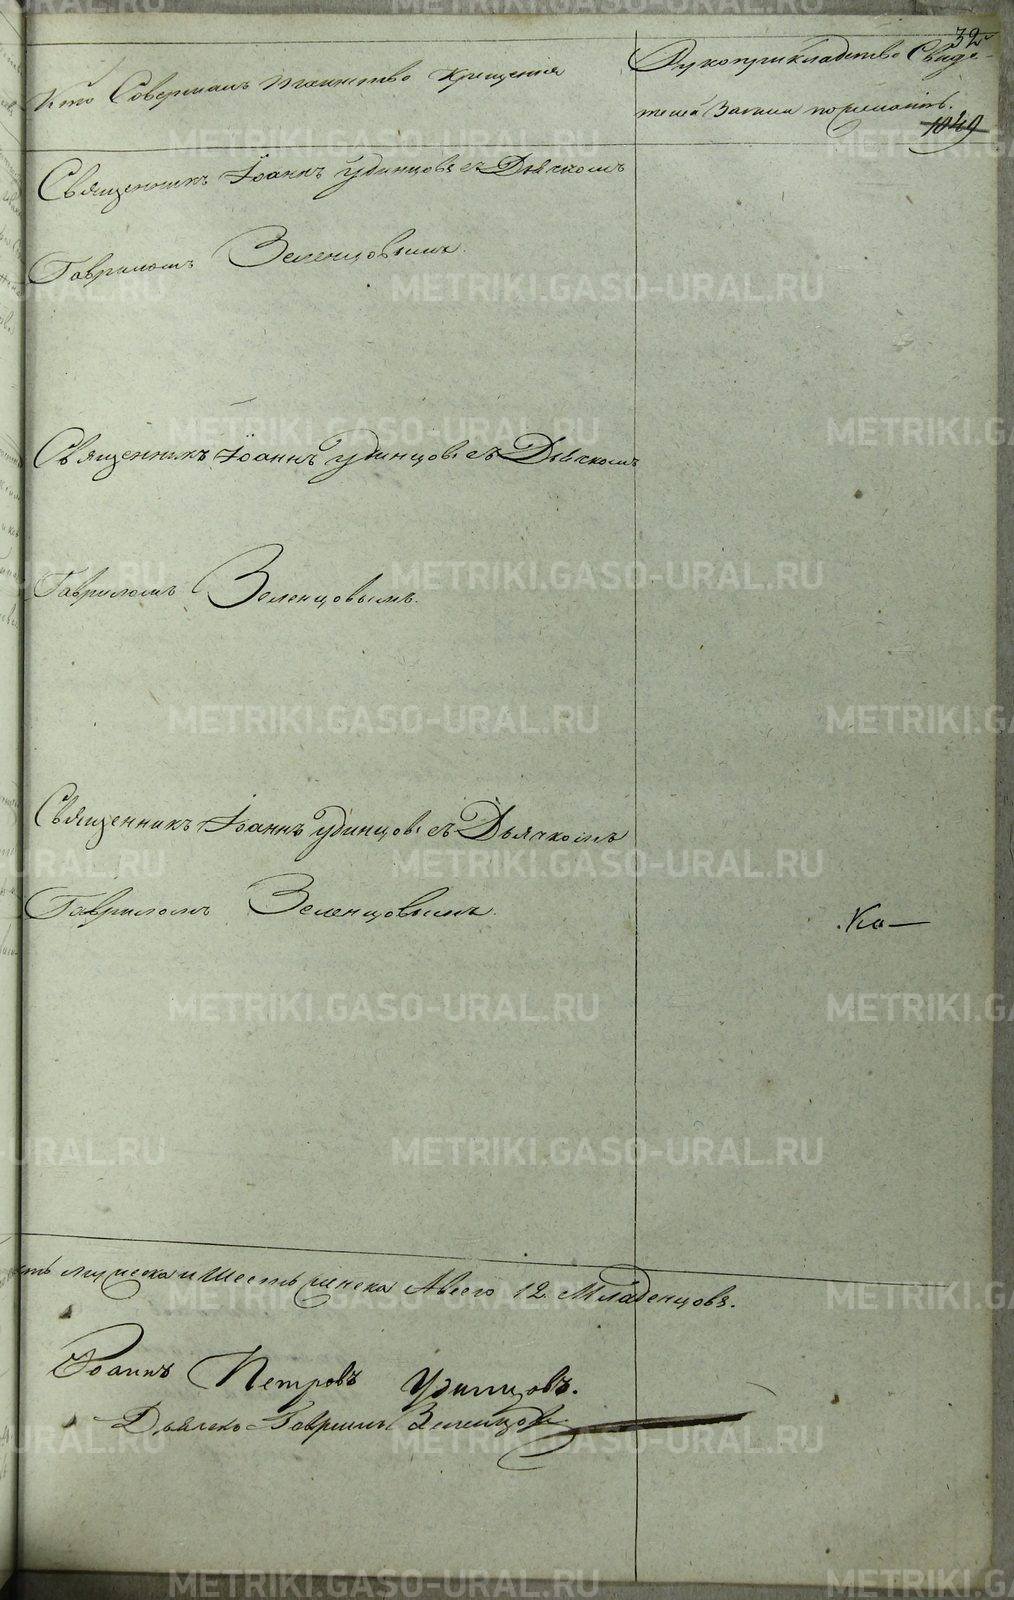 32
Кто Совершалъ таинство Крещенія
Рукоприкладство Свиде-
телей Записи по желанію.
1049
Священникъ Іоаннъ Удинцовъ съ Дьячкомъ
Гавриломъ Зеленцовымъ.
Священникъ Іоаннъ Удинцовъ съ Дьячкомъ
Гавриломъ Зеленцовымъ.
Священникъ Іоаннъ Удинцовъ съ Дьячкомъ
Гавриломъ Зеленцовымъ.
Ко—
и Шесть женска А всего 12. Младенцовъ.
Іоаннъ Петровъ Удинцовъ.
Дьячекъ Гавриилъ Зеленцовъ
METRIKI.GASO-URAL.RU